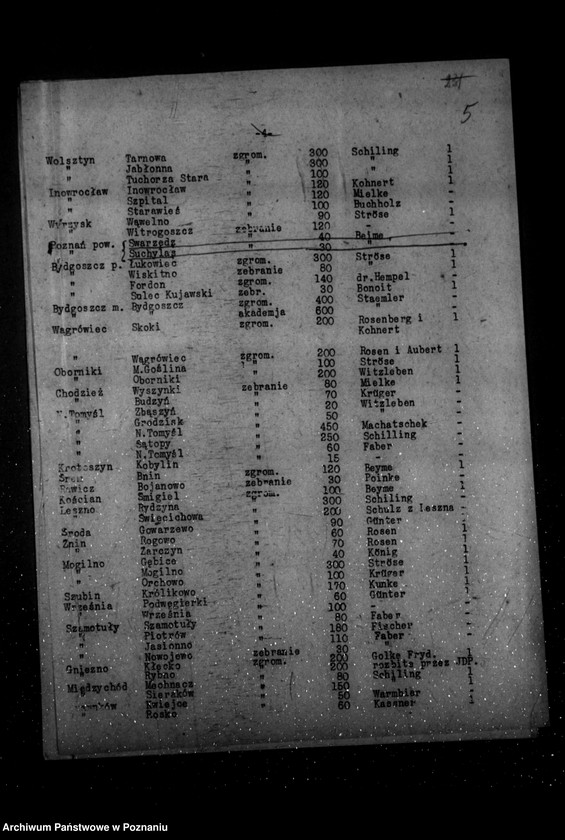 5
-4-
Wolsztyn Tarnowa zgrom. 300 Schiling 1
" Jabłonna " 300 " 1
" Tuchorza Stara " 100 " 1
Inowrocław Inowrocław " 120 Kohnert 1
" Szpital " 120 Mielke -
" Starawieś " 100 Buchholz -
Wyrzysk Wąwelno " 90 Ströse 1
" Witrogoszcz zebranie 120 - -
Poznań pow. Swarzędz " 40 Beime -
" Suchylas " 30 " -
Bydgoszcz p. Łukowiec zgrom. 300 Ströse 1
" Wiskitno zebranie 80 " -
" Fordon zgrom. 140 dr.Hempel -
" Solec Kujawski zebr. 30 Bonoit 1
Bydgoszcz m. Bydgoszcz zgrom. 400 Staemler -
akademja 600 " -
Wągrówiec Skoki zgrom. 200 Rosenberg i 1
Kohnert
" Wągrówiec zgrom. 200 Rosen i Aubert 1
Oborniki M.Goślina " 100 Ströse 1
" Oborniki " 200 Witzleben 1
Chodzież Wyszynki zebranie 80 Mielke -
" Budzyń " 70 Krüger -
N.Tomyśl Zbąszyń " 20 Witzleben -
" Grodzisk " 50 " -
" N.Tomyśl " 450 Machatschek -
" Sątopy " 250 Schilling -
" N.Tomyśl " 60 Faber -
Krotoszyn Kobylin " 15 - -
Śrem Bnin zgrom. 120 Beyme 1
Rawicz Bojanowo zebranie 30 Poinke -
Kościan Śmigiel zgrom. 100 Beyme 1
Leszno Rydzyna " 300 Schiling 1
" Święcichowa " 200 Schulz z Leszna -
Środa Gowarzewo " 90 Günter -
Żnin Rogowo " 60 Rosen 1
" Żarczyn " 70 Rosen 1
Mogilno Gębice " 40 König 1
" Mogilno " 300 Ströse 1
" Orchowo " 100 Krüger 1
Szubin Królikowo " 170 Kunke 1
Września Podwęgierki " 60 Günter 1
" Września " 100 - -
Szamotuły Szamotuły " 80 Faber -
" Piotrów " 180 Fischer -
" Jasionno " 110 Faber -
" Nowojewo zebranie 30 " -
Gniezno Kłecko zgrom. 200 Golke Fryd. 1
" Rybno " 200 rozbite przez JDP.
Międzychód Mechnacz " 80 Schiling 1
" Sieraków " 150 " 1
Kwiejce " 50 Warmbier -
" Rosko " 60 Kassner -
Archiwum Państwowe w Poznaniu